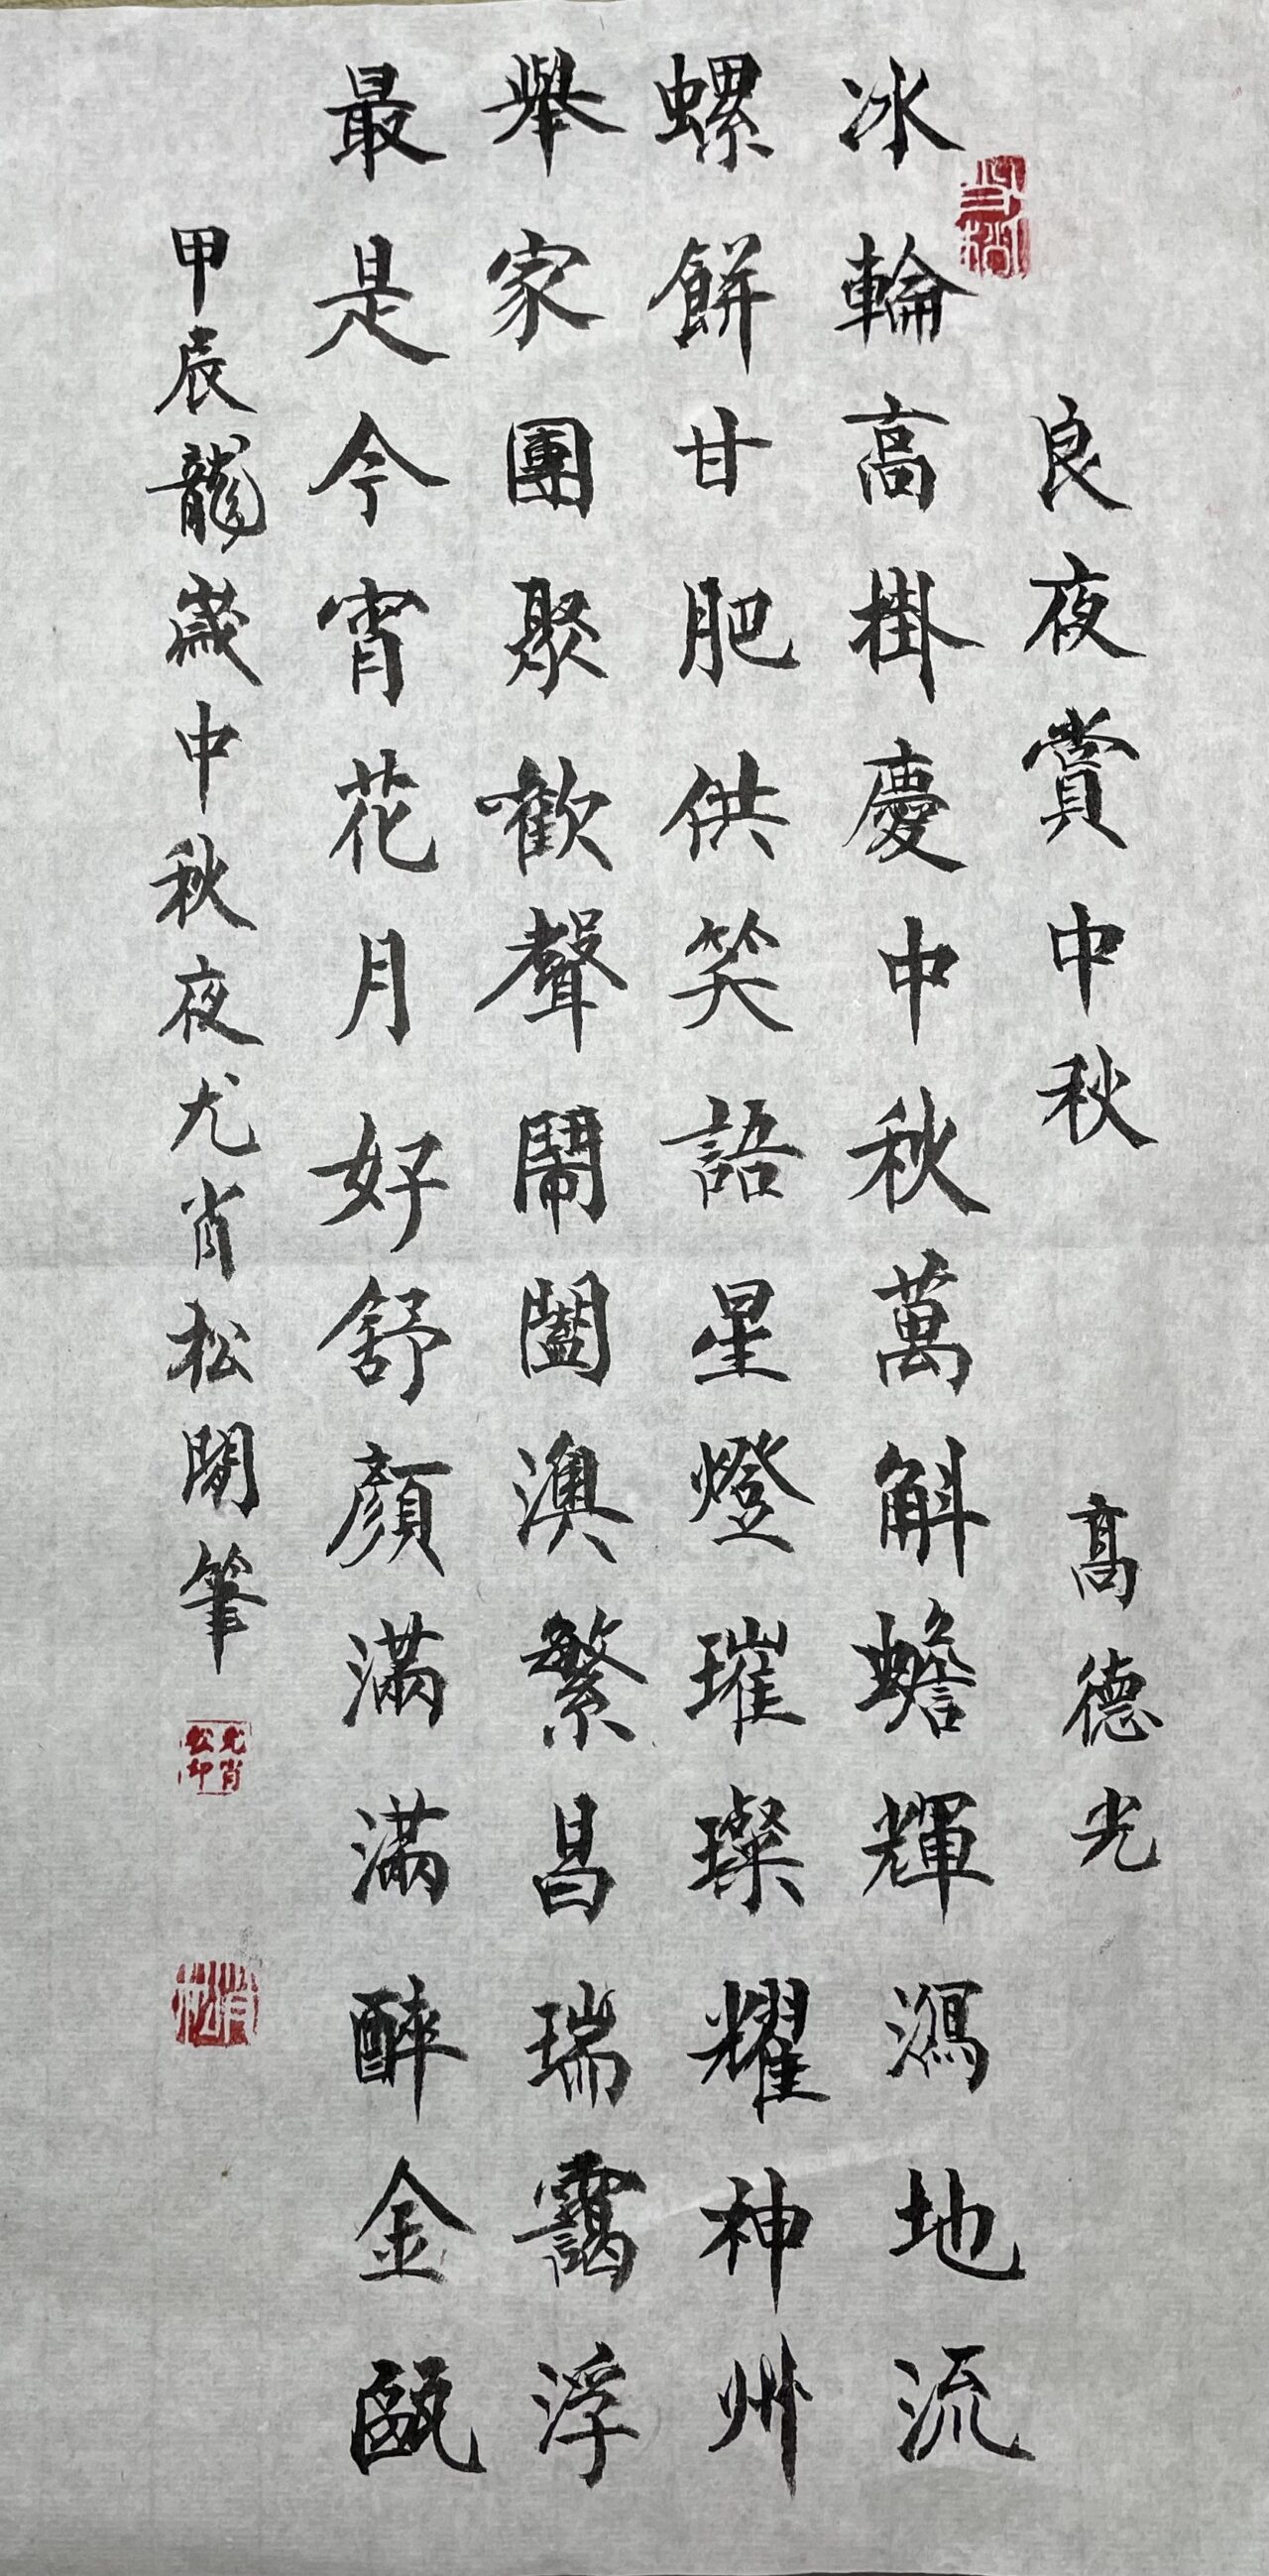 良夜賞中秋 高德光
冰輪高掛慶中秋萬斛蟾輝瀉地流
螺餅甘肥供笑語星燈璀璨耀神州
舉家團聚歡聲鬧闔澳繁昌瑞靄浮
最是今宵花月好舒顏滿滿醉金甌
甲辰龍歲中秋夜尤肖松閒筆
尤肖松印
肖松